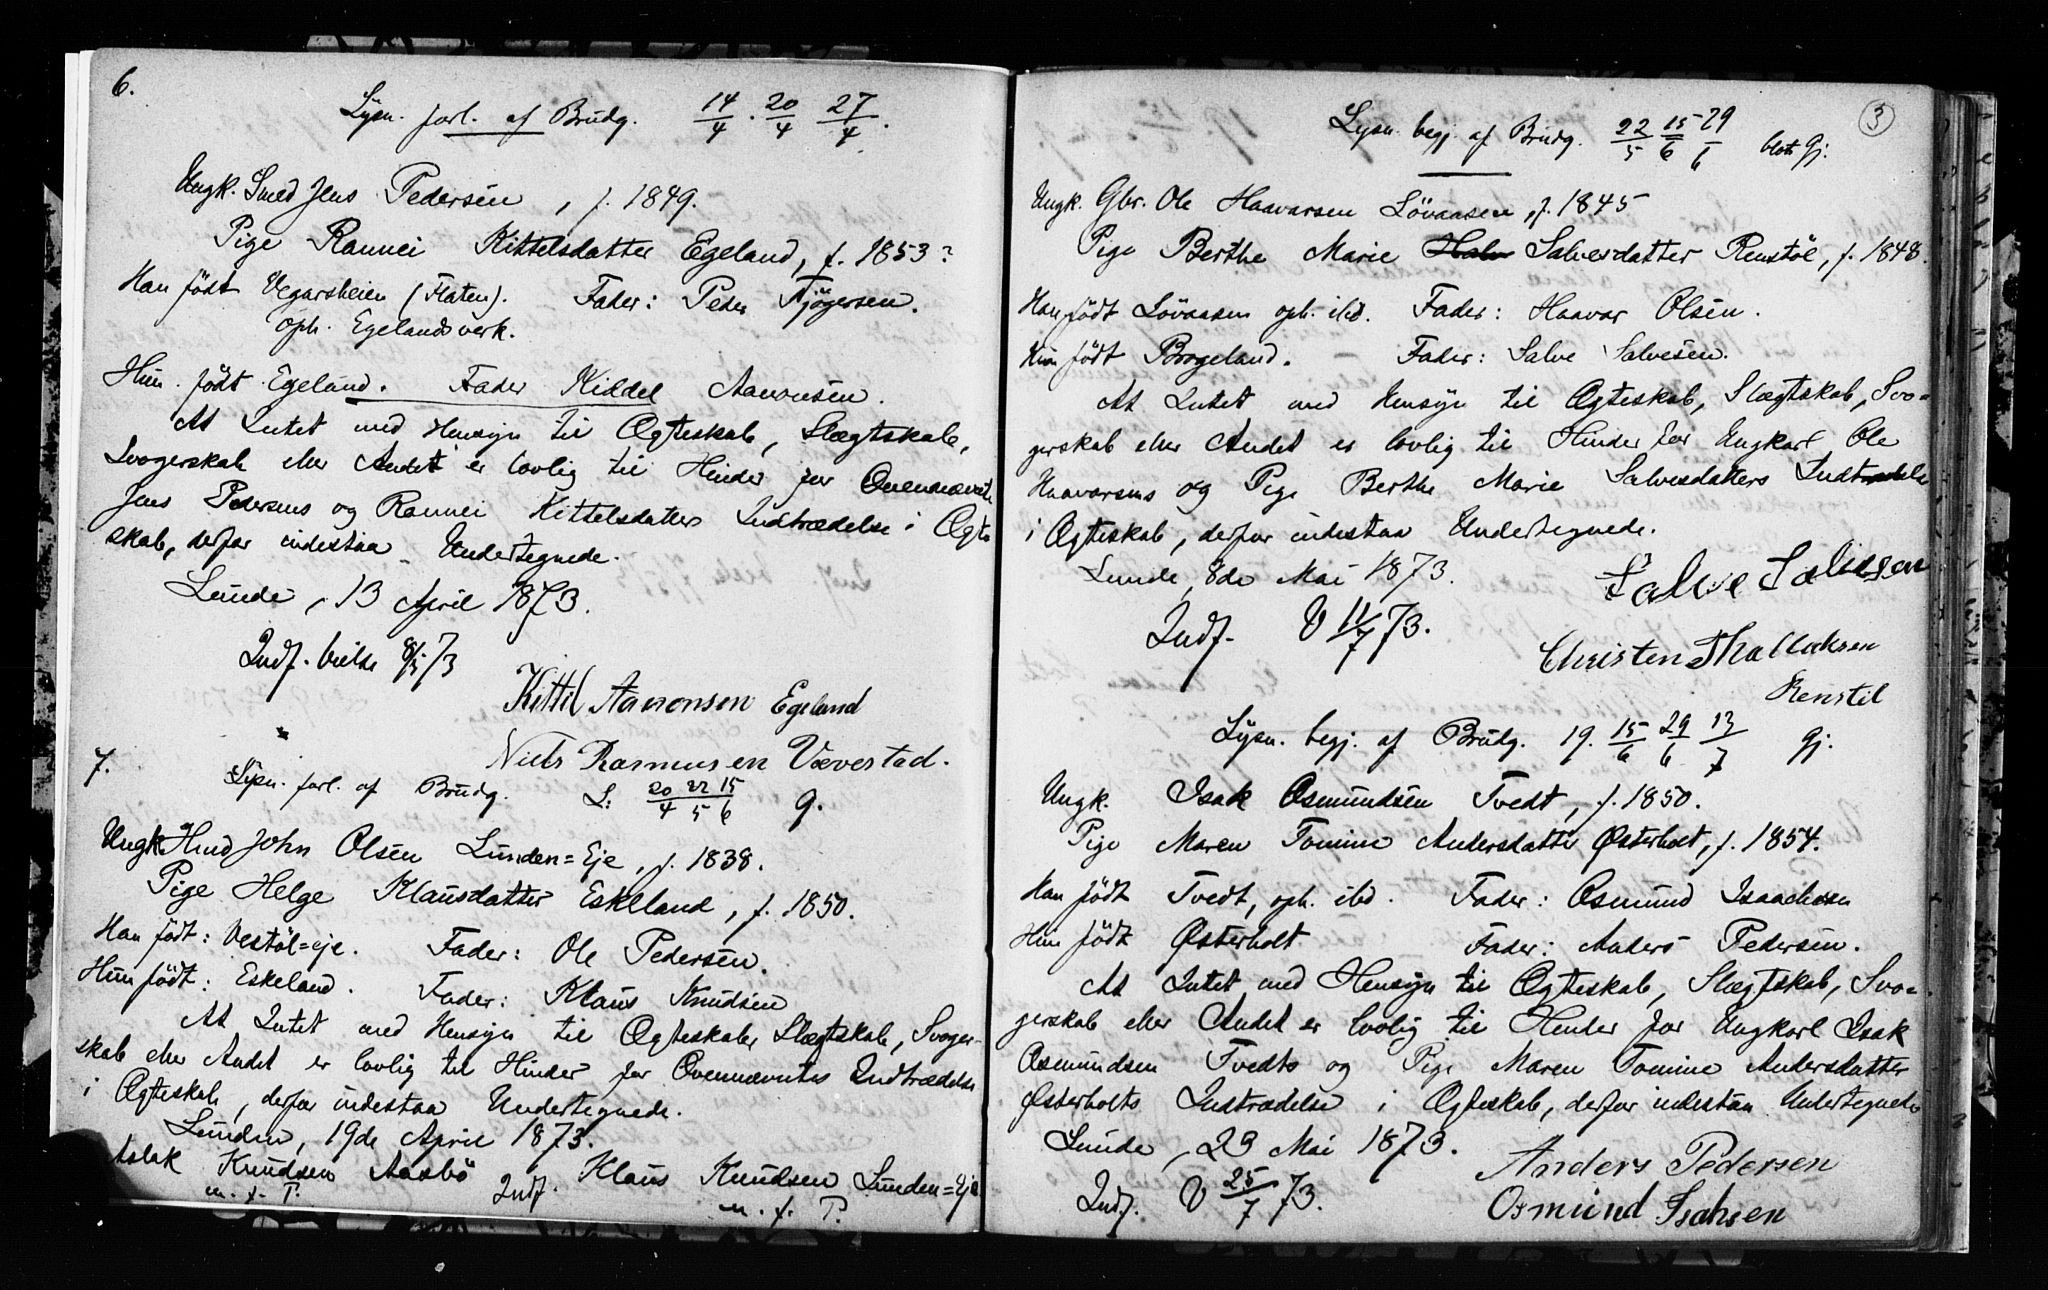 6.
Lysn. forl. af Brudg. 14/4 . 20/4 27/4.
Ungk. Smed Jens Pedersen, f. 1849.
Pige Rannei Kittelsdatter Egeland, f. 1853?
Han født Vegarsheien (Flaten). Fader: Peder Gjögersen.
oph. Egelandsverk.
Hun født Egeland. Fader Kiddel Aanonsen.
At Intet med Hensyn til Ægteskab, Slægtskab,
Svogerskab eller Andet er lovlig til Hinder for Ovennævnte
Jens Pedersens og Rannei Kittelsdatters Indtrædelse i Ægte
skab, derfor indestaa Undertegnede.
Lunde, 13 April 1873.
Indf. vielse 8/5 73
Kittil Aanonsen Egeland
Niels Rasmusen Vævestad.
7.
Lysn. forl. af Brudg. L: 20/4 22/5 15/6 g.
Ungk. Hmd John Olsen Lunden=Eje, f. 1838.
Pige Helge Klausdatter Eskeland, f. 1850.
Han født: Vestöl=eje. Fader: Ole Pedersen.
Hun født: Eskeland. Fader: Klaus Knudsen
At Intet med Hensyn til Ægteskab, Slægtskab, Svoger-
skab eller Andet er lovlig til Hinder for Ovennævntes Indtrædelse
i Ægteskab, derfor indestaa Undertegnede.
Lunden, 19de April 1873.
Aslak Knudsen Aasbö Indf. Klaus Knudsen Lunden=Eje
m. f. P. m. f. P.
3
Lysn. begj. af Brudg. 22/5 15/6 29/6 blot Gj.
Ungk. Gbr. Ole Haavorsen Lövaasen, f. 1845
Pige Berthe Marie Halv Salvesdatter Renstöl, f. 1848.
Han født Lövaasen oph. ibd. Fader: Haavor Olsen.
Hun født Brogeland. Fader: Salve Salvesen.
At Intet med Hensyn til Ægteskab, Slægtskab, Svo=
gerskab eller Andet er lovlig til Hinder for Ungkarl Ole
Haavorsens og Pige Berthe Marie Salvesdatters Indtrædelse
i Ægteskab, derfor indestaa Undertegnede.
Lunde, 8de Mai 1873.
Salve Salvesen
Indf. V 11/7 73.
Christen Thallaksen
Renstil
Lysn. begj. af Brudg. 19. 15/6 29/6 13/7 Gj.
Ungk. Isak Osmundsen Tvedt, f. 1850.
Pige Maren Tomine Andersdatter Østerholt, f. 1854.
Han født Tvedt, oph. ibd. Fader: Osmund Isaachsen
Hun født Østerholt Fader: Anders Pedersen.
At Intet med Hensyn til Ægteskab, Slægtskab, Svo=
gerskab eller Andet er lovlig til Hinder for Ungkarl Isak
Osmundsen Tvedts og Pige Maren Tomine Andersdatter
Østerholts Indtrædelse i Ægteskab, derfor indestaa Undertegnede
Lunde, 23 Mai 1873.
Anders Pedersen
Indf. V 25/7 73.
Osmund Isachsen